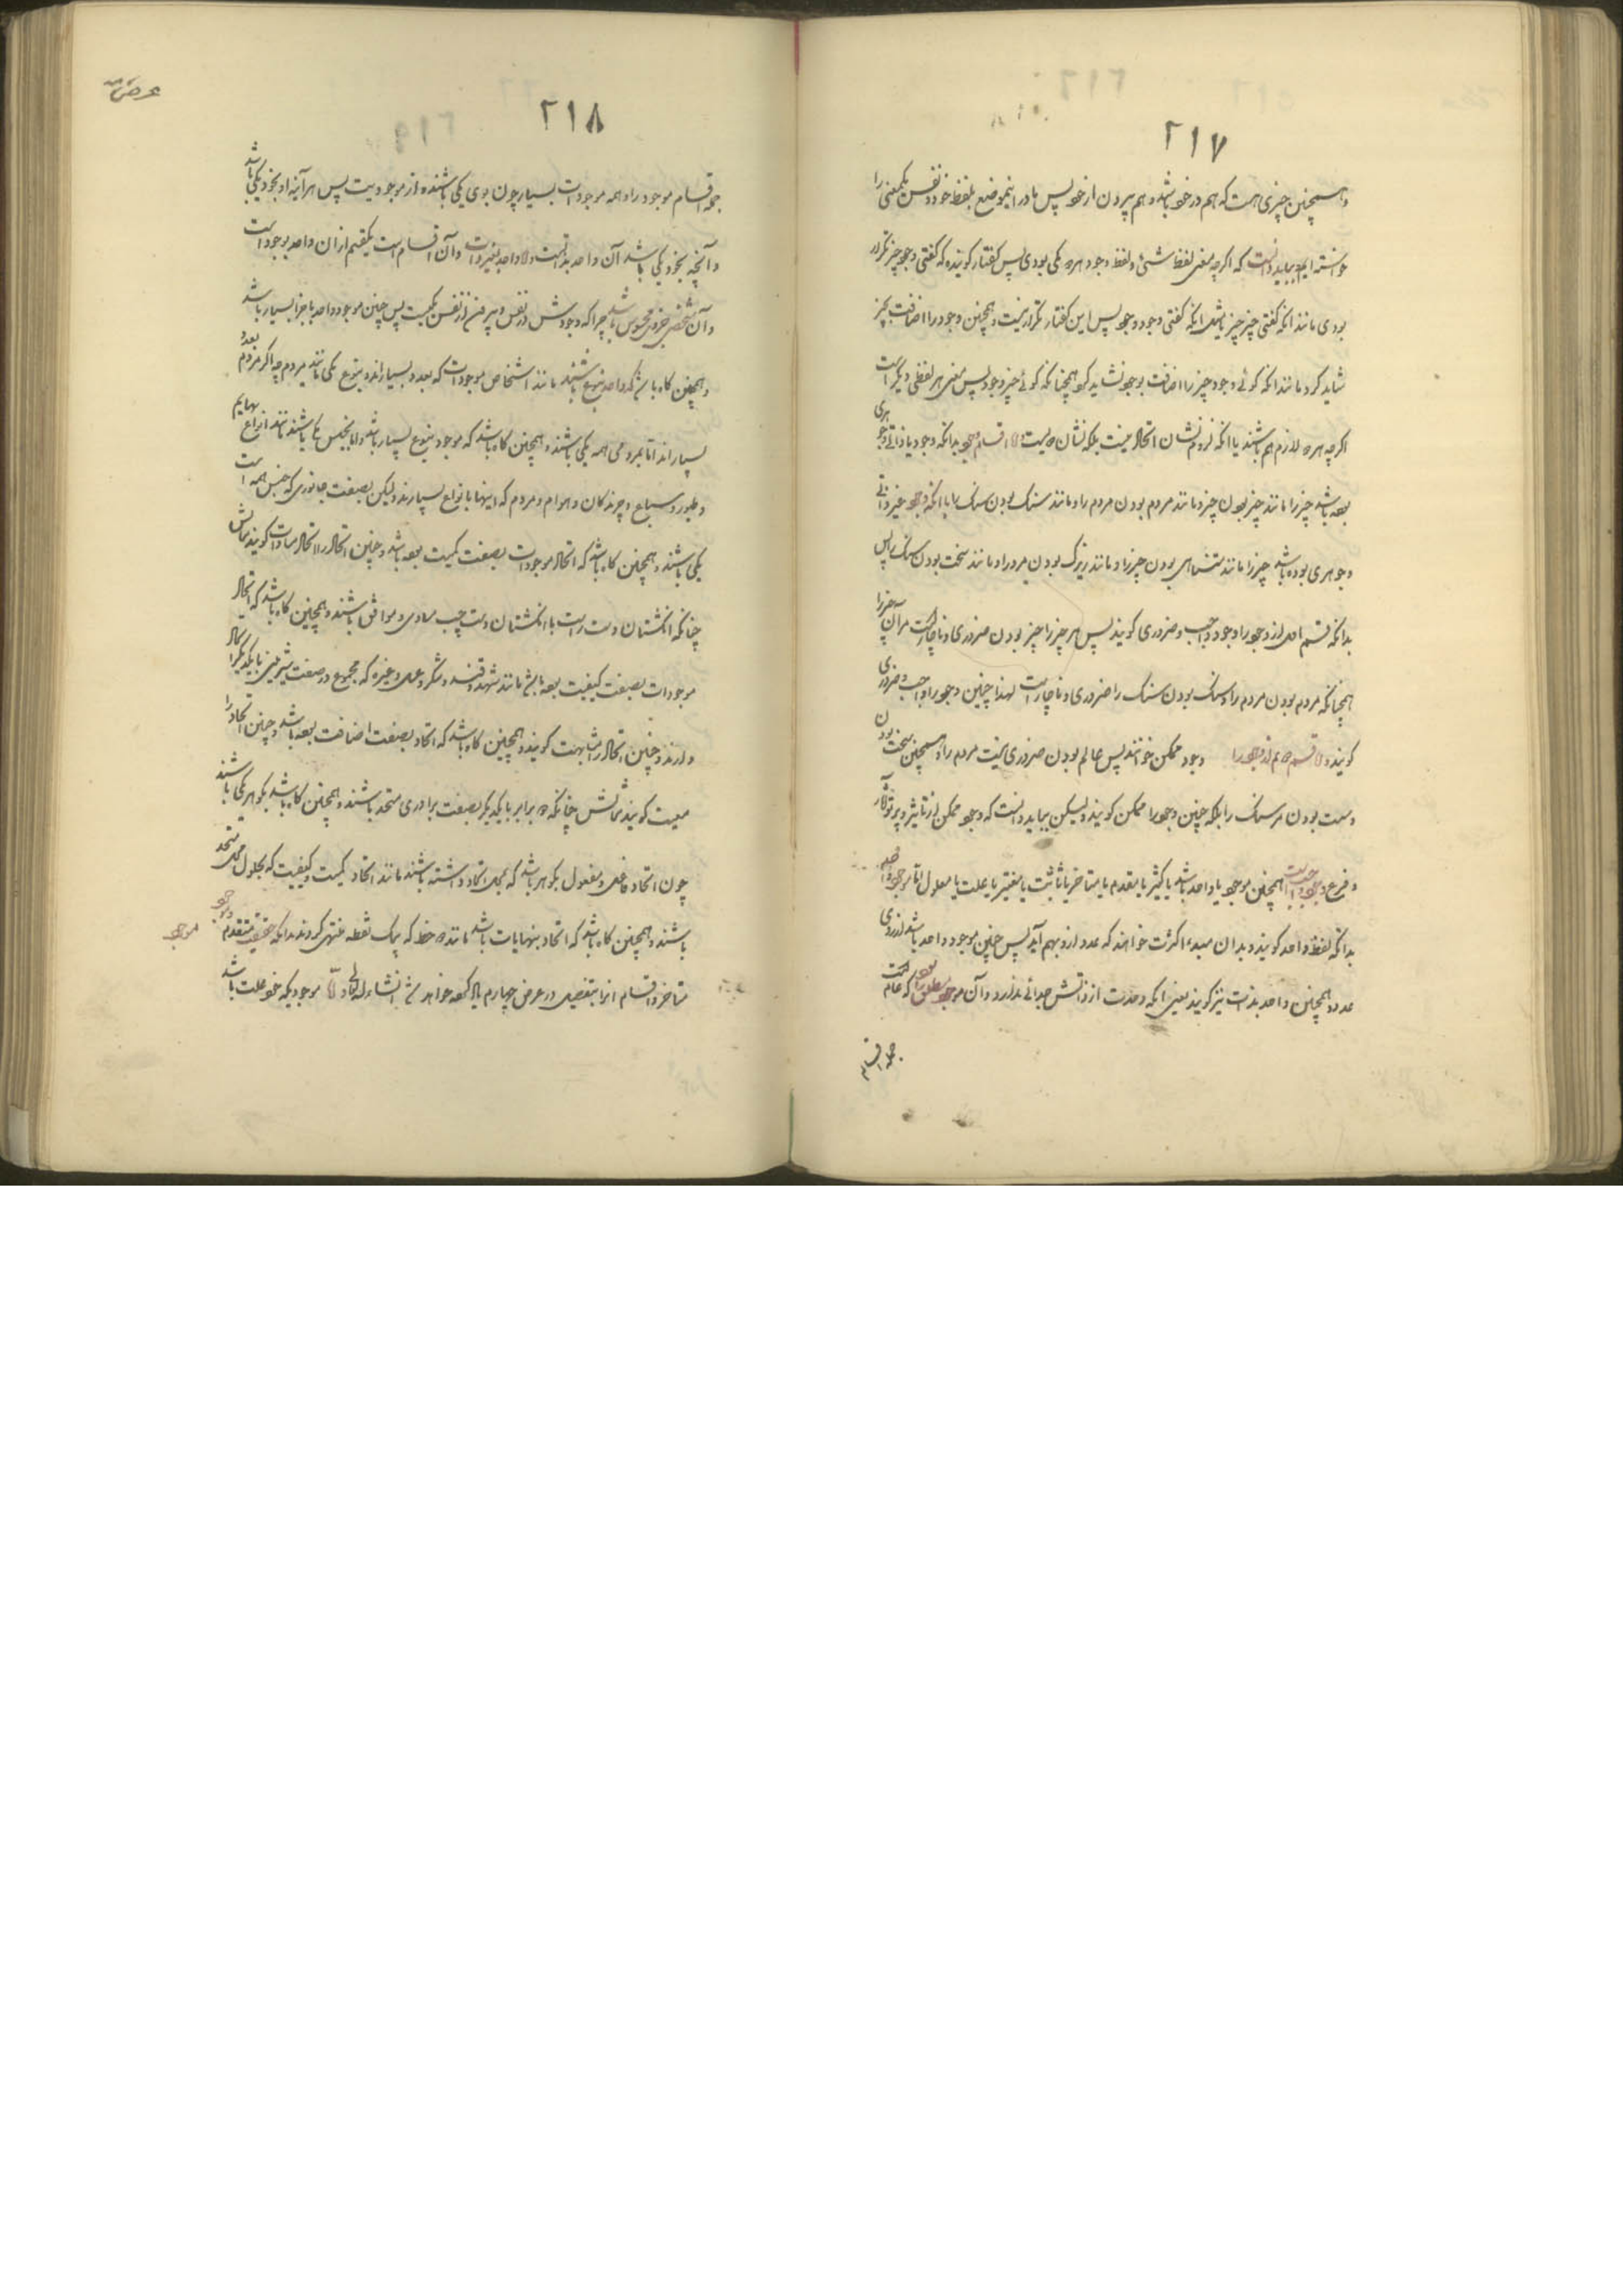 ۲۱۷
و همچنین چیزی هست که هم در خود باشد و هم بیرون از خود پس ما در اینموضع بلفظ خود و نفس یکمعنی را
خواسته ایم و بباید دانست که اگرچه معنی لفظ شئ و لفظ وجود هر دو یکی بودی پس گفتار گوینده که گفتی وجود چیز تکرار
بودی مانند انکه گفتی چیز چیز یا مثل انکه گفتی وجود وجود پس این گفتار تکرار نیست و همچنین وجود را اضافت بچیز
شاید کرد مانند انکه گوئی وجود چیز را اضافت بوجود نشاید کرد همچنانکه گوئی چیز وجود پس معنی هر لفظی دیگر است
اگرچه هر دو لازم هم باشند یا انکه لزوم نشان اتحاد نیست بلکه نشان دویست اقسام وجود بدانکه وجود یا ذاتی و جوهری
بوده باشد چیز را مانند چیز بودن چیز و مانند مردم بودن مردم را و مانند سنگ بودن سنگ را یا انکه وجود غیر ذاتی
و جوهری بوده باشد چیز را مانند متناهی بودن چیز را و مانند زیرک بودن مردم را و مانند سخت بودن سنگ را پس
بدانکه قسم اول از وجود را وجود واجب و ضروری گویند پس هر چیز را چیز بودن ضروری و ناچار است مر آن چیز را
همچنانکه مردم بودن مردم را و سنگ بودن سنگ را ضروری و ناچار است لهذا چنین وجود را واجب و ضروری
گویند و قسم دوم از وجود را وجود ممکن خوانند پس عالم بودن ضروری نیست مردم را و همچنین سخت بودن
و ست بودن مر سنگ را بلکه چنین وجود را ممکن گویند و لیکن بباید دانست که وجود ممکن از تاثیر و پرتو و آثار
و فرع وجود واجب است همچنین موجود یا واحد باشد یا کثیر یا مقدم یا متاخر یا ثابت یا متغیر یا علت یا معلول اما موجود واحد
بدانکه لفظ واحد گویند و بدان مبدء کثرت خواهند که عدد از و بهم آید پس چنین موجود واحد باشد از روی
عدد و همچنین واحد بذات نیز گویند یعنی انکه وحدت از ذاتش جدائی ندارد و آن موجود مطلق بود که عام است
جمله اقسام
عرض
۲۱۸
جمله اقسام موجود را و همه موجودات بسیار چون بوی یکی باشنده از موجودیت پس هر آینه او بخود یکی باشد
و آنچه بخود یکی باشد آن واحد بذاتست و واحد بغیر ذات و آن اقسام است یکقسم از ان واحد بوجود است
و آن شخص جزوی محسوس باشد چرا که وجودش در نفس و بیرون از نفس یکیست پس چنین موجود واحد باجزا بسیار باشد
و همچنین گاه باشد که واحد بنوع باشند مانند اشخاص موجودات که بعدد بسیارند و بنوع یکی مانند مردم چه اگر مردم بعدد
بسیارند اما بمردمی همه یکی باشند و همچنین گاه باشد که موجود بنوع بسیار باشد و اما بجنس یکی باشند مانند انواع بهایم
و طیور و سباع و چرندگان و هوام و مردم که اینها بانواع بسیارند و لیکن بصفت جانوری که جنس همه است
یکی باشند و همچنین گاه باشد که اتحاد موجودات بصفت کمیت بوده باشد و چنین اتحاد را اتحاد مساوات گویند مثالش
چنانکه انگشتان دست راست با انگشتان دست چپ مساوی و موافق باشند و همچنین گاه باشد که اتحاد
موجودات بصفت کیفیت بوده باشد مانند شهد و قند و شکر و عسل و غیره که مجموع در صفت شیرینی با یکدیگر اتحاد
دارند و چنین اتحاد را مشابهت گویند و همچنین گاه باشد که اتحاد بصفت اضافت بوده باشد و چنین اتحاد را
معیت گویند مثالش چنانکه دو برادر با یکدیگر بصفت برادری متحد باشند و همچنین گاه باشد بگوهر یکی باشند
چون اتحاد فاعل و مفعول بگوهر باشد که بمحل اتحاد داشته باشند مانند اتحاد کمیت و کیفیت که بحلول محل متحد
باشند و همچنین گاه باشد که اتحاد بنهایات باشد مانند دو خط که بیک نقطه منتهی گردند بدانکه حقیقت متقدم و موجود
متاخر و اقسام انرا بتفصیل در عرض چهارم یاد کرده خواهد شد انشاء الله تعالی و موجودیکه خود علت باشد
موجود